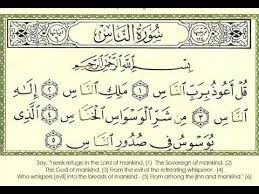 سُورَةُ النَّاسِ
بِسْمِ اللَّهِ الرَّحْمَٰنِ الرَّحِيمِ
قُلْ أَعُوذُ بِرَبِّ النَّاسِ ١ مَلِكِ النَّاسِ ٢ إِلَٰهِ
النَّاسِ ٣ مِن شَرِّ الْوَسْوَاسِ الْخَنَّاسِ ٤ الَّذِي
يُوَسْوِسُ فِي صُدُورِ النَّاسِ ٥
Say, "I seek refuge in the Lord of mankind, (1) The Sovereign of mankind. (2)
The God of mankind, (3) From the evil of the retreating whisperer - (4)
Who whispers [evil] into the breasts of mankind - (5) From among the jinn and mankind." (6)